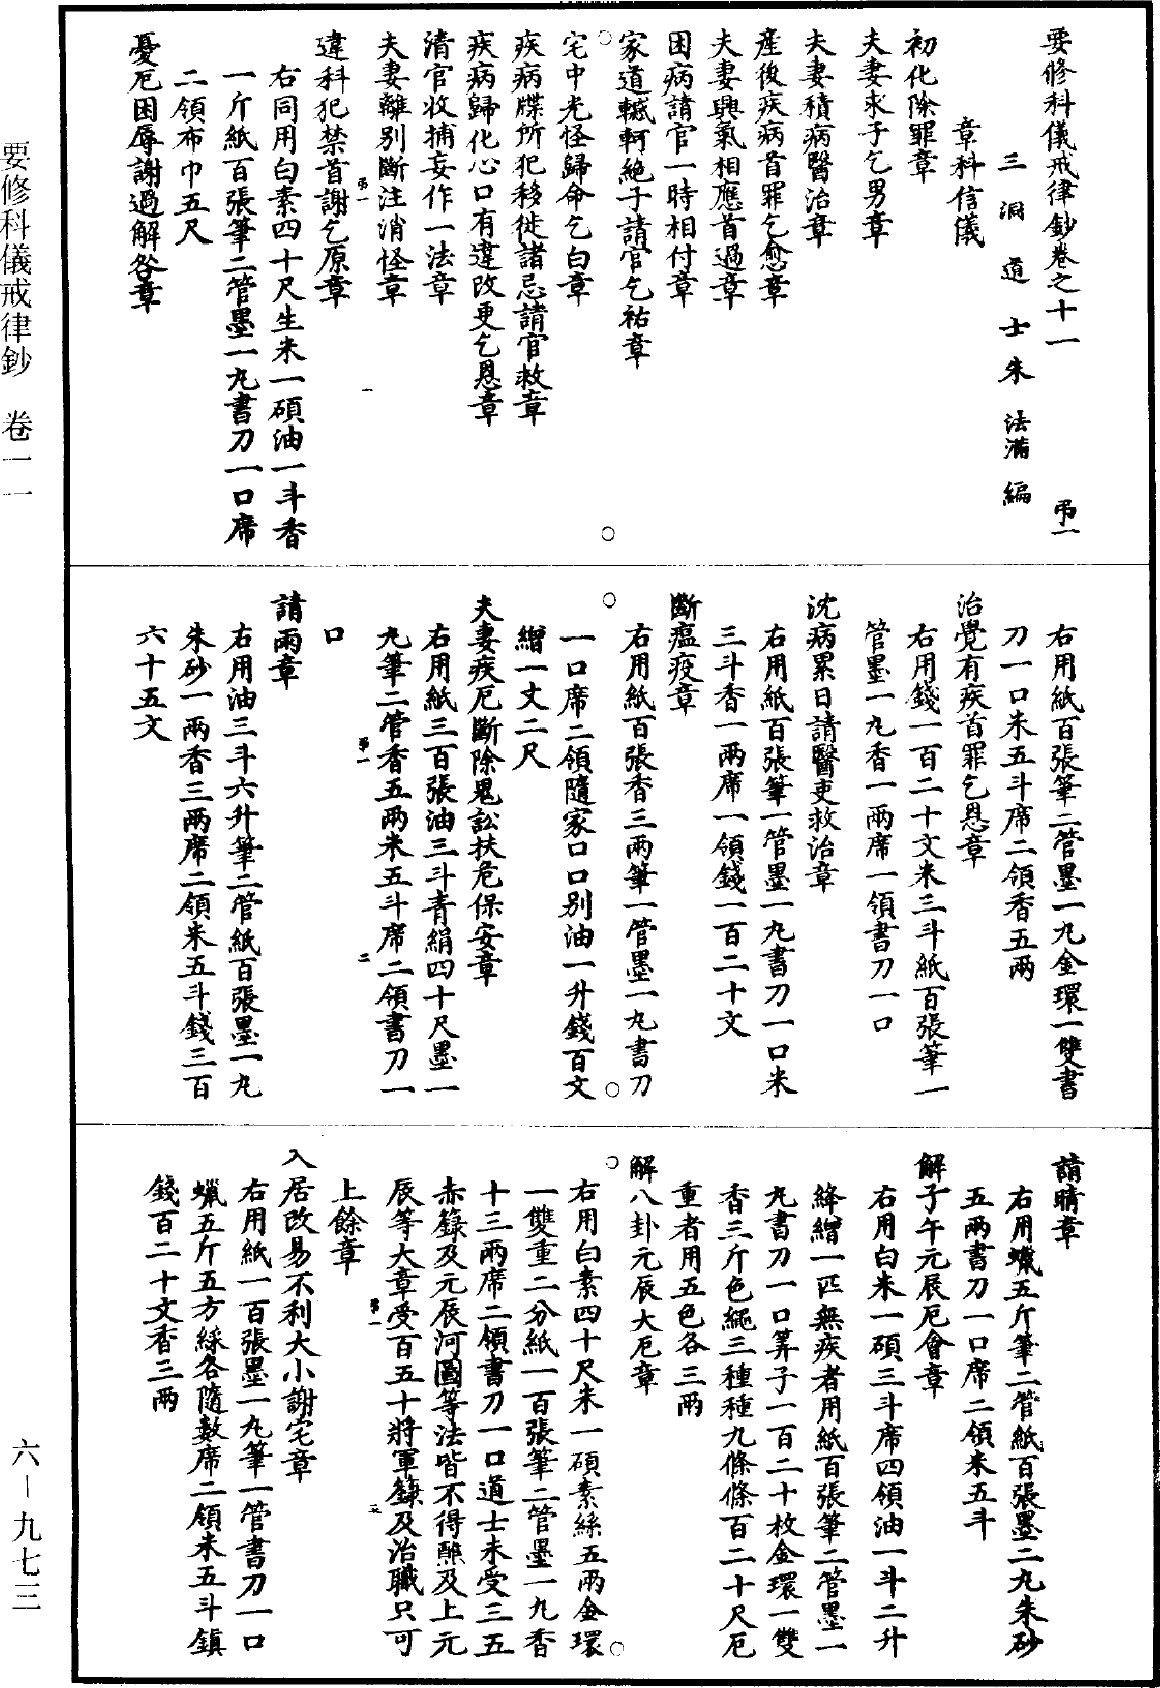 要修科儀戒律鈔卷之十一　弔一
三洞道士朱法滿編
章科信儀
初化除罪章
夫妻求子乞男章
夫妻積病醫治章
產後疾病首罪乞愈章
夫妻興氣相應首過章
困病請官一時相付章
家道轗軻絶子請官乞祐章
宅中光怪歸命乞白章
疾病牒所犯移徙諸忌請官救章
疾病歸化心口有違改更乞恩章
清官收捕妄作一法章
夫妻離別斷注消怪章
弔一　一
違科犯禁首謝乞原章
右同用白素四十尺生米一碩油一斗香
一斤紙百張筆二管墨一丸書刀一口席
二領布巾五尺
憂厄困辱謝過解咎章
右用紙百張筆二管墨一丸金環一雙書
刀一口米五斗席二領香五兩
治覺有疾首罪乞恩章
右用錢一百二十文米三斗紙百張筆一
管墨一丸香一兩席一領書刀一口
沈病累日請醫吏救治章
右用紙百張筆一管墨一丸書刀一口米
三斗香一兩席一領錢一百二十文
斷瘟疫章
右用紙百張香三兩筆一管墨一丸書刀
一口席二領隨家口口別油一升錢百文
繒一丈二尺
夫妻疾厄斷除鬼訟扶危保安章
右用紙三百張油三斗青絹四十尺墨一
丸筆二管香五兩米五斗席二領書刀一
弔一　二
口
請雨章
右用油三斗六升筆二管紙百張墨一丸
朱砂一兩香三兩席二領米五斗錢三百
六十五文
請晴章
右用蠟五斤筆二管紙百張墨二丸朱砂
五兩書刀一口席二領米五斗
解子午元辰厄會章
右用白米一碩三斗席四領油一斗二升
絳繒一匹無疾者用紙百張筆二管墨一
丸書刀一口筭子一百二十枚金環一雙
香三斤色繩三種種九條條百二十尺厄
重者用五色各三兩
解八卦元辰大厄章
右用白素四十尺米一碩素絲五兩金環
一雙重二分紙一百張筆二管墨一丸香
十三兩席二領書刀一口道士未受三五
赤籙及元辰河圖等法皆不得醮及上元
辰等大章受百五十將軍籙及治職只可
弔一　三
上餘章
入居改易不利大小謝宅章
右用紙一百張墨一丸筆一管書刀一口
蠟五斤五方綵各隨數席二領米五斗鎮
錢百二十文香三兩
要修科儀戒律鈔　卷一一
六—九七三